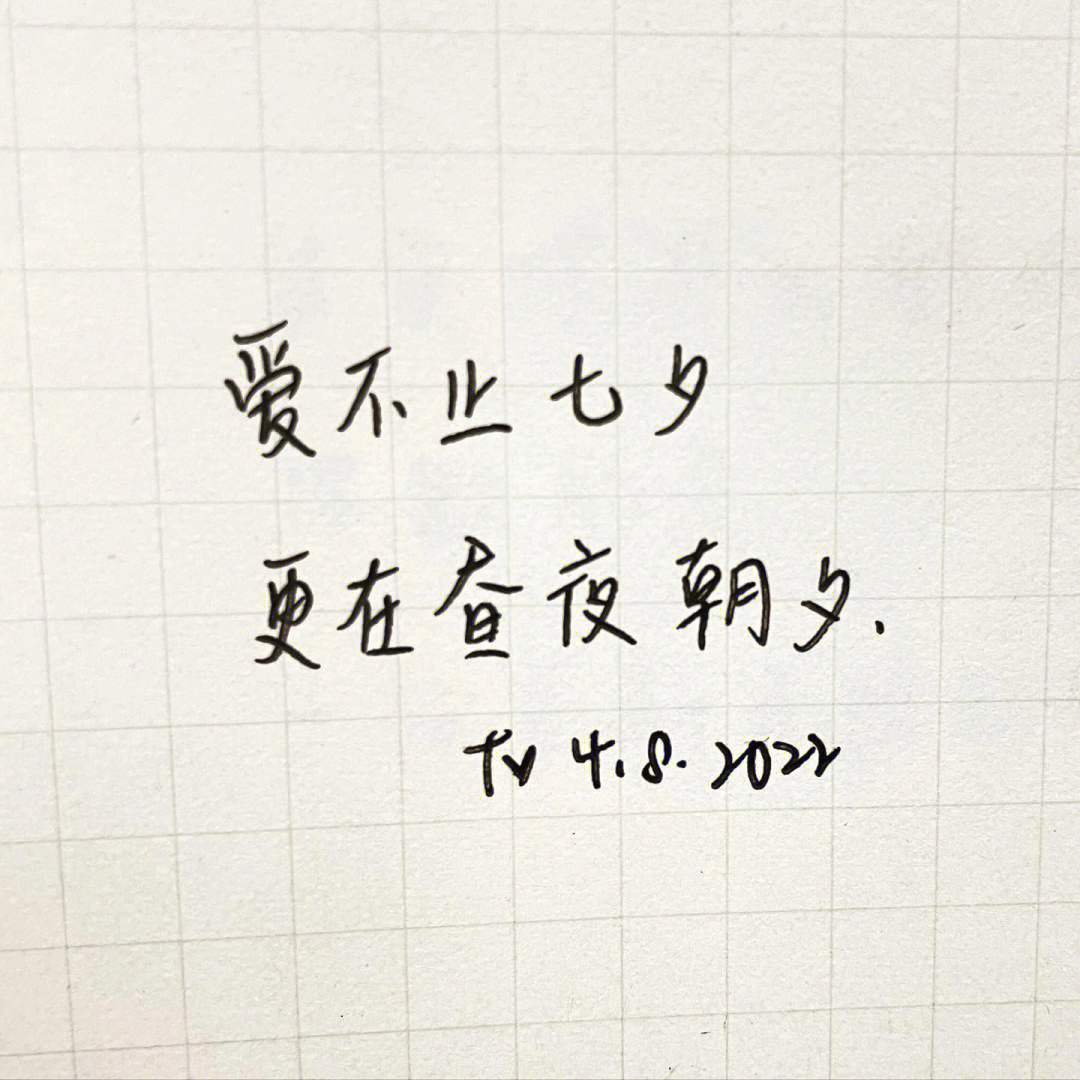 爱不止七夕
更在昼夜朝夕.
TV 4.8.2022